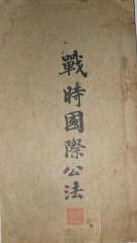 戰時國際公法